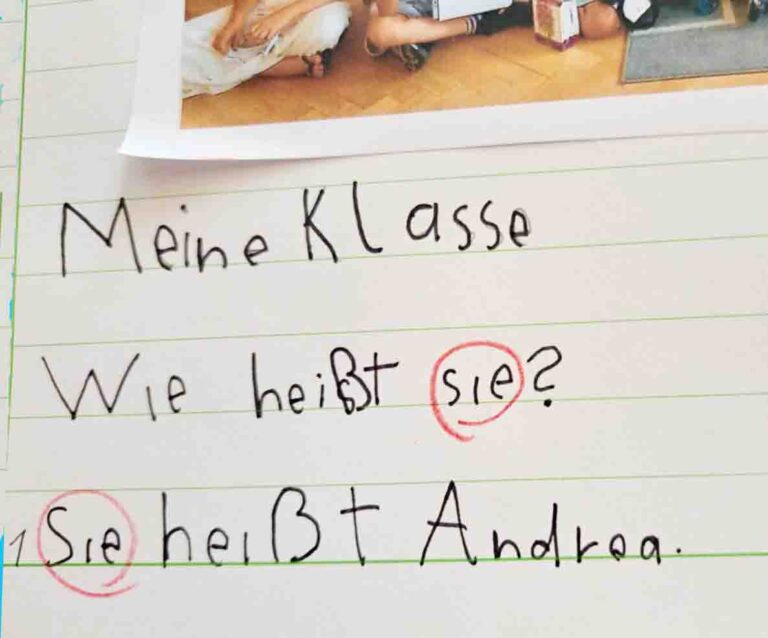 Meine Klasse
Wie heißt sie?
1 Sie heißt Andrea.